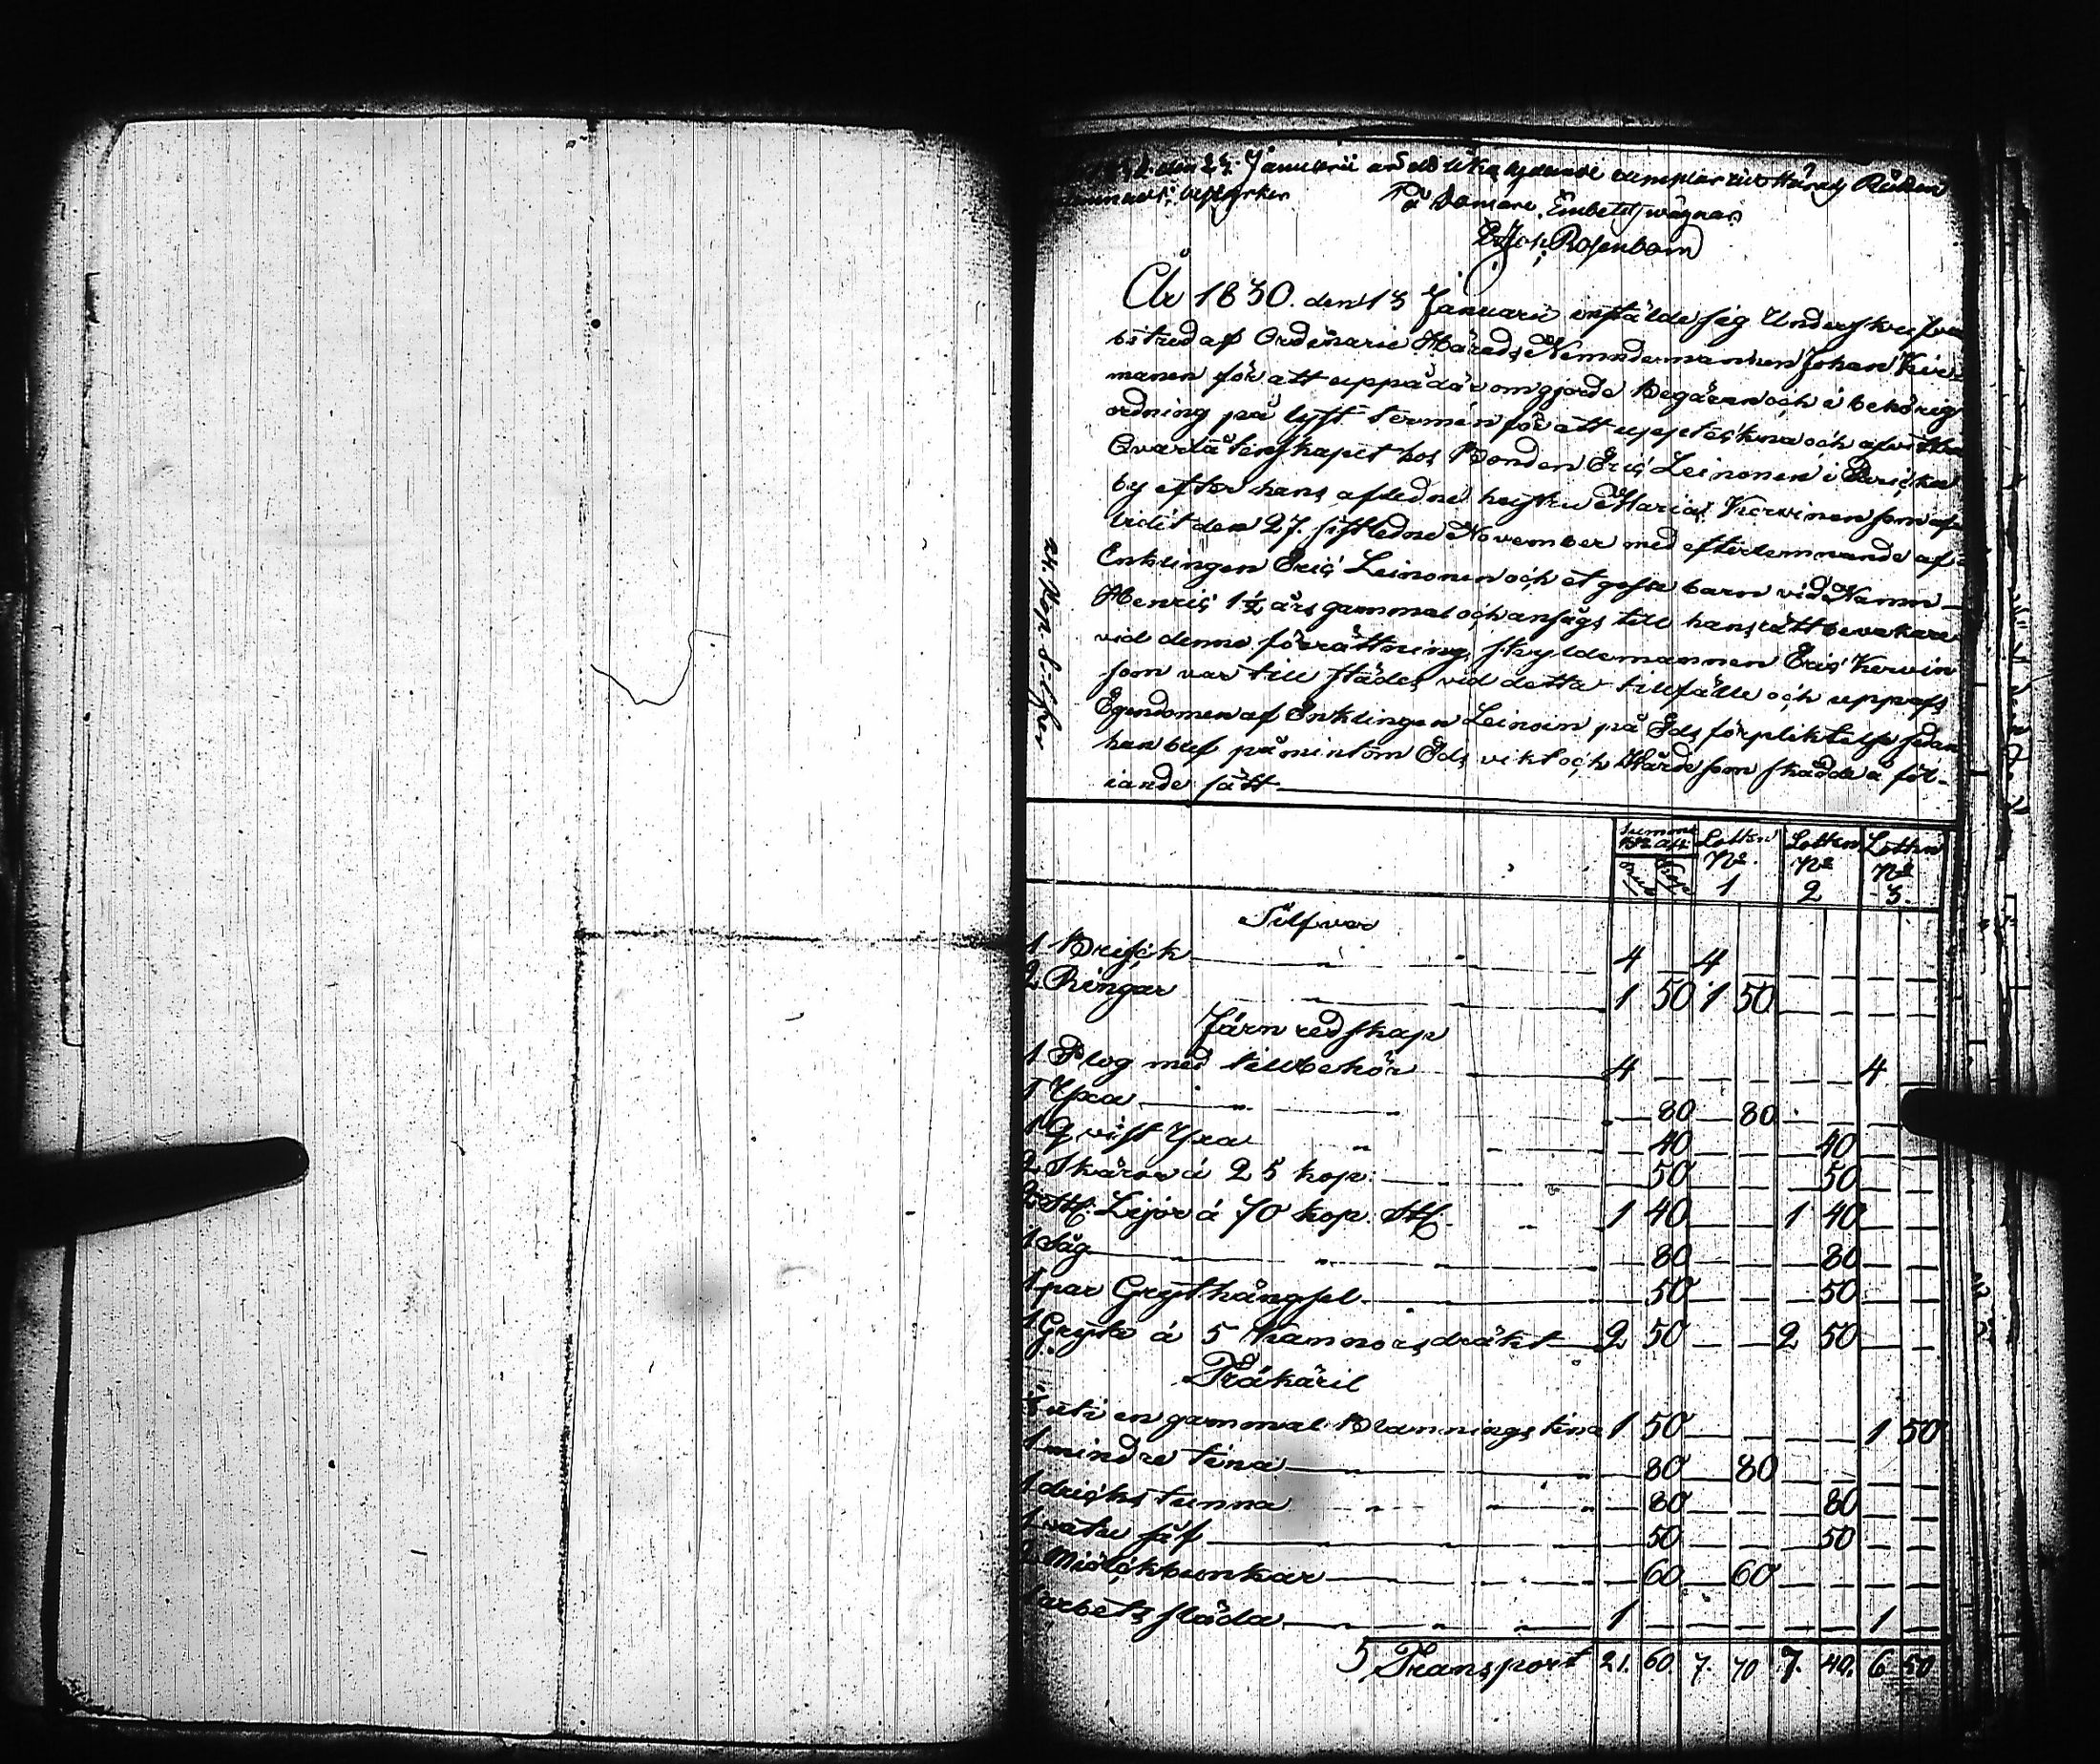 den 24. Januarii lika lydande exemplar Härads Rätten
bestyrker På Domare Embetets vägnar
Joh. Rosenbom
År 1830. den 13 Januarii instälde sig Underskrifven
biträd af Ordinarie Härads Nemndemannen Johan Kir-
manen för att uppå där om gjorde Begäran och i behörig
ordning på lyst termin för att uppteckna och afvittra
Qvarlåtenskapet hos Bonden Eric Leinonen i
by efter hans afledne hustru Maria Kervinen som af-
lidit den 27. sistledne November med efterlemnande af
Enklingen Eric Leinonen och et gosse barn vid Namn
Henric 1½ års gammal och ansågs till hans rätt bevakare
vid denna förrättning skyldemannen Eric Kervin
som var till städes vid detta tillfälle och uppafs
Egendomen af Enklingen Leinoin på Eds förpliktelse sedan
han blef påmint om Eds vikt och Värde som skedde å föl-
iande sätt
24. Kop. Silfver
Lotten Lotten Lotten
Nº Nº Nº
1 2 3.
Silfver
1 Brisck 4 4
2 Ringar 1 50 1 50
Järn redskap
1 Plog med tillbehör 4 4
1 Yxa 80 80
1 Qvist Yxa 40 40
2 Skäror á 25 kop: 50 50
2 St: Lijor á 70 kop. St: 1 40 1 40
1 Såg 80 80
1 par Grythängsel 50 50
1 Gryta á 5 kannors dräkt 2 50 2 50
Träkäril
½ uti en gammal Blannings tina 1 50 1 50
1 mindre tina 80 80
1 dricks tunna 80 80
1 vatu såf 50 50
2 Miölckbunkar 60 60
1 arbets släda 1 1
Transport 21. 60 7. 70 7. 40. 6 50